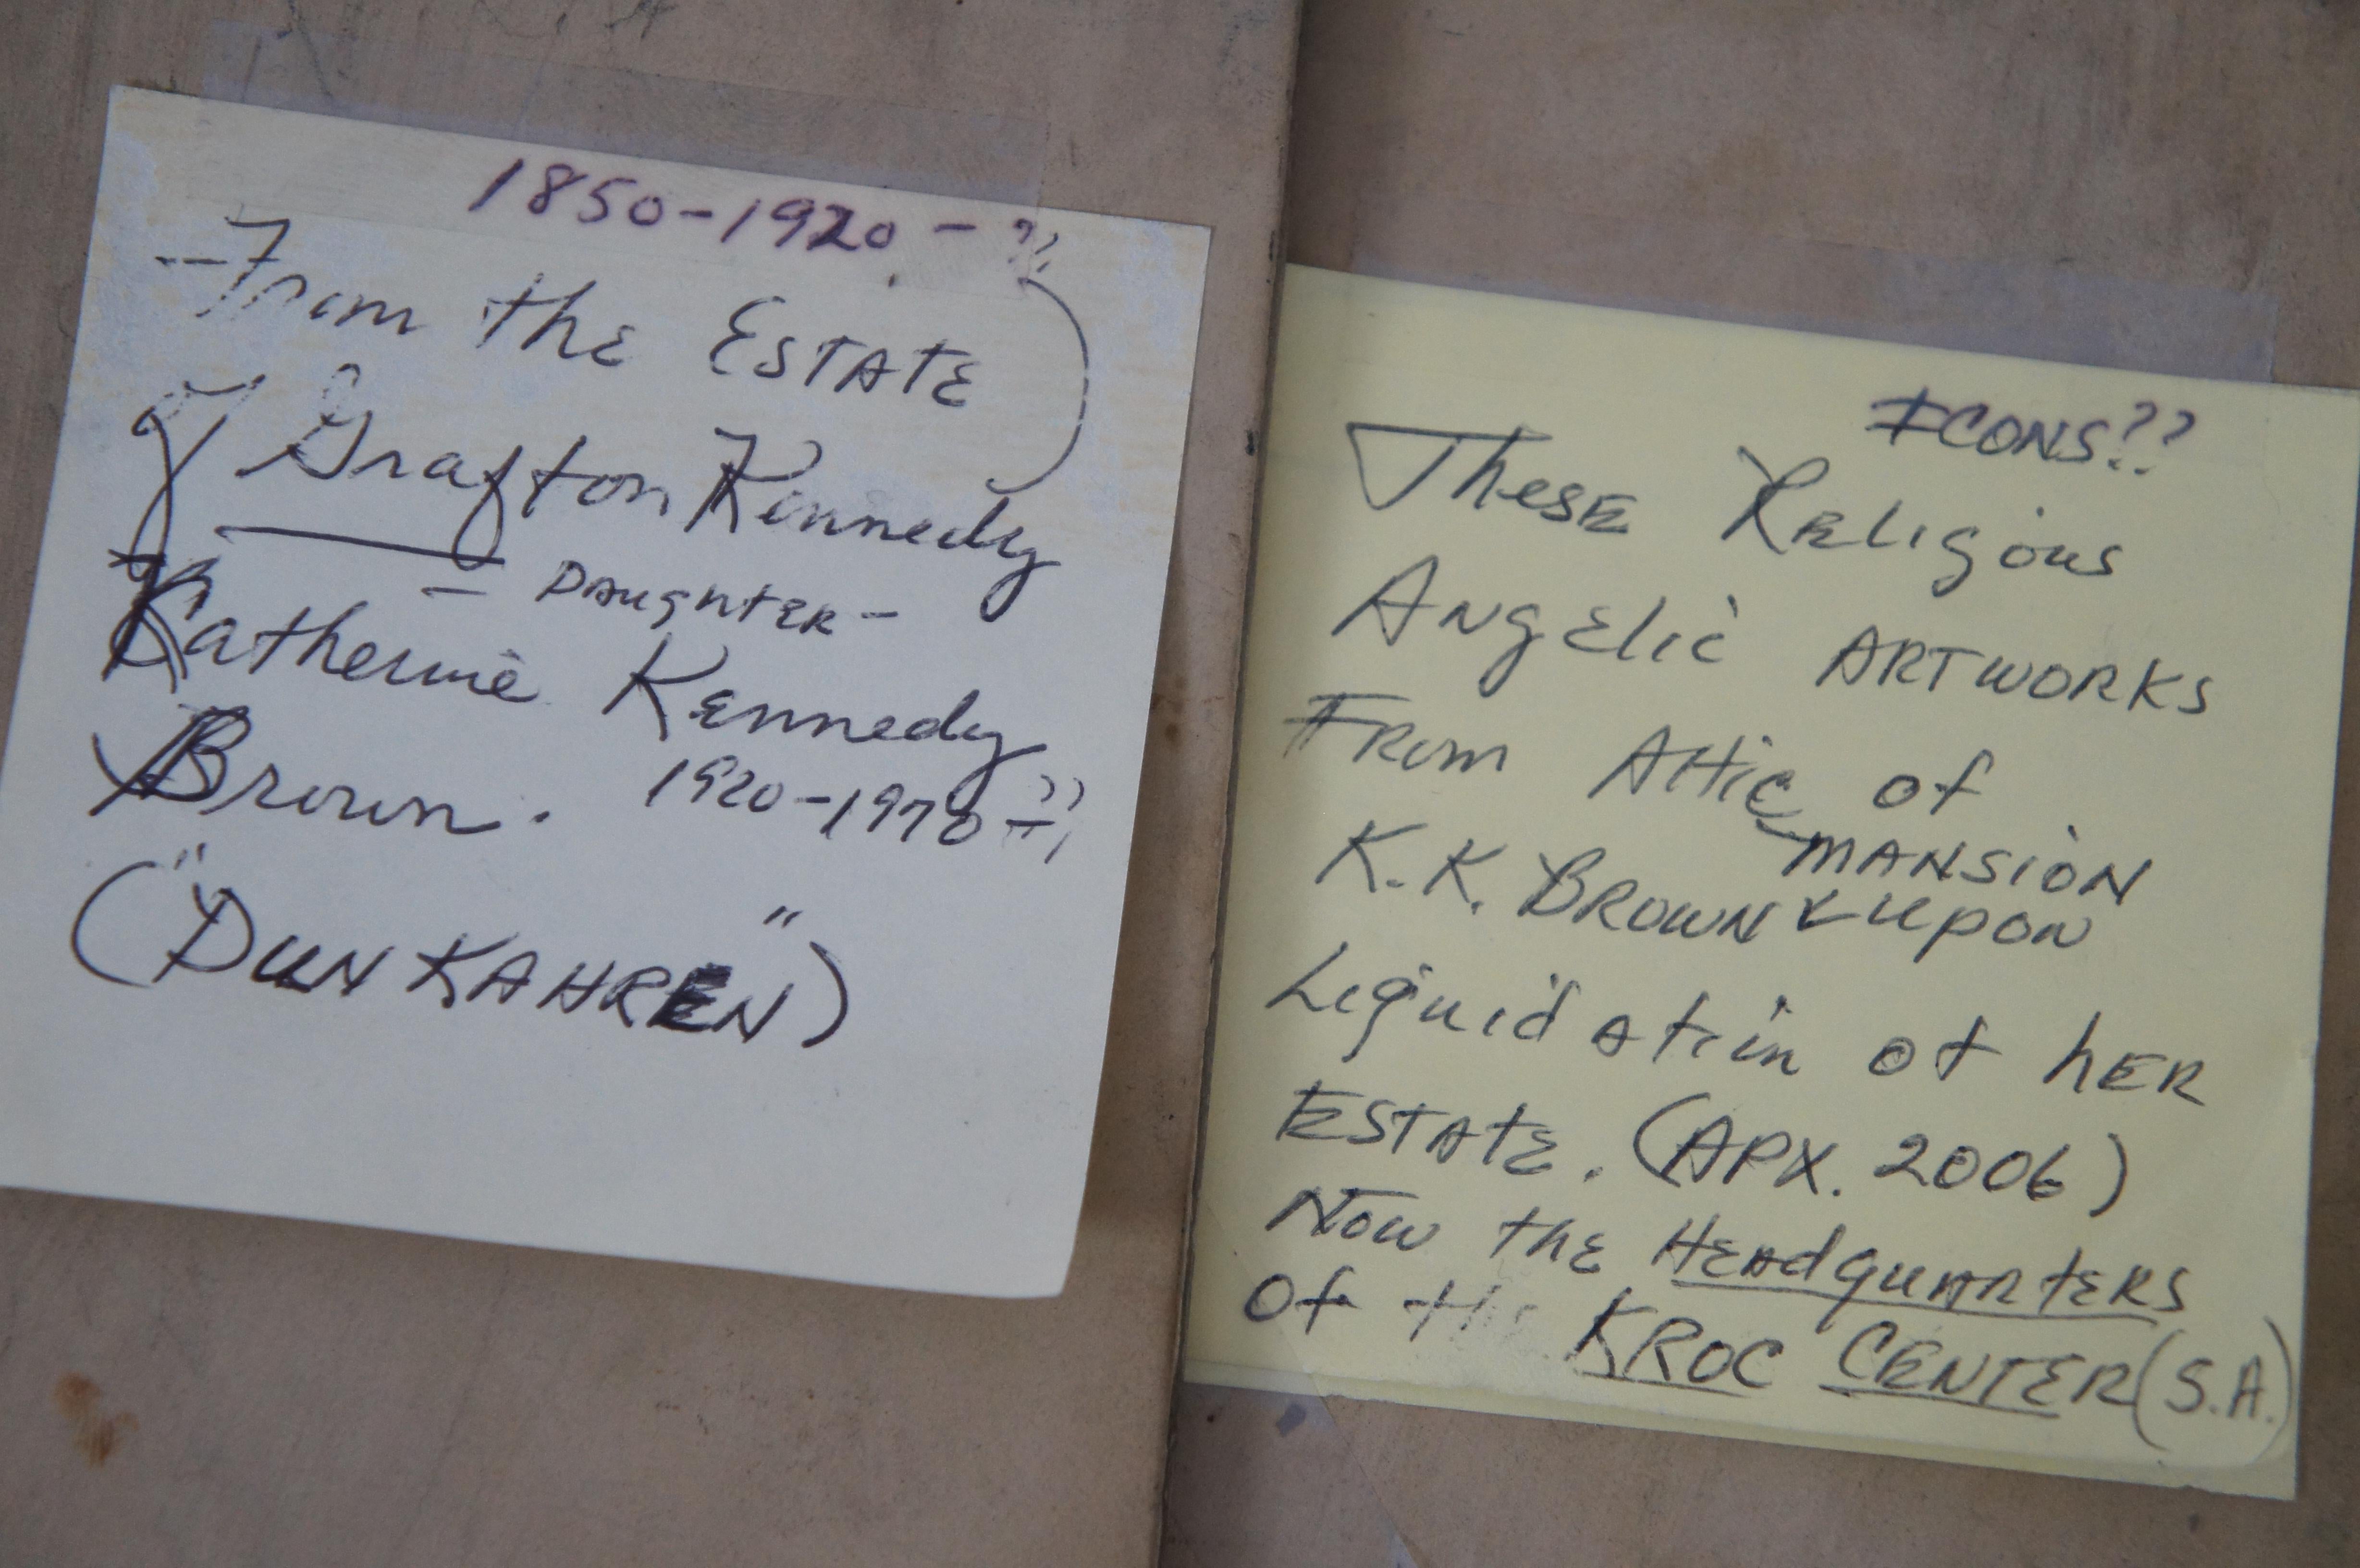 1850-1920 - ??
-From the ESTATE
of Grafton Kennedy
- DAUGHTER -
Katherine Kennedy
Brown. 1920-1970-??
("DUNKAHREN")
ICONS??
These Religious
Angelic ARTWORKS
From Attic of
MANSION
K.K. BROWN & upon
Liquidation of hER
ESTATE. (APX. 2006)
Now the HEADquARTERS
Of the KROC CENTER (S.A.)